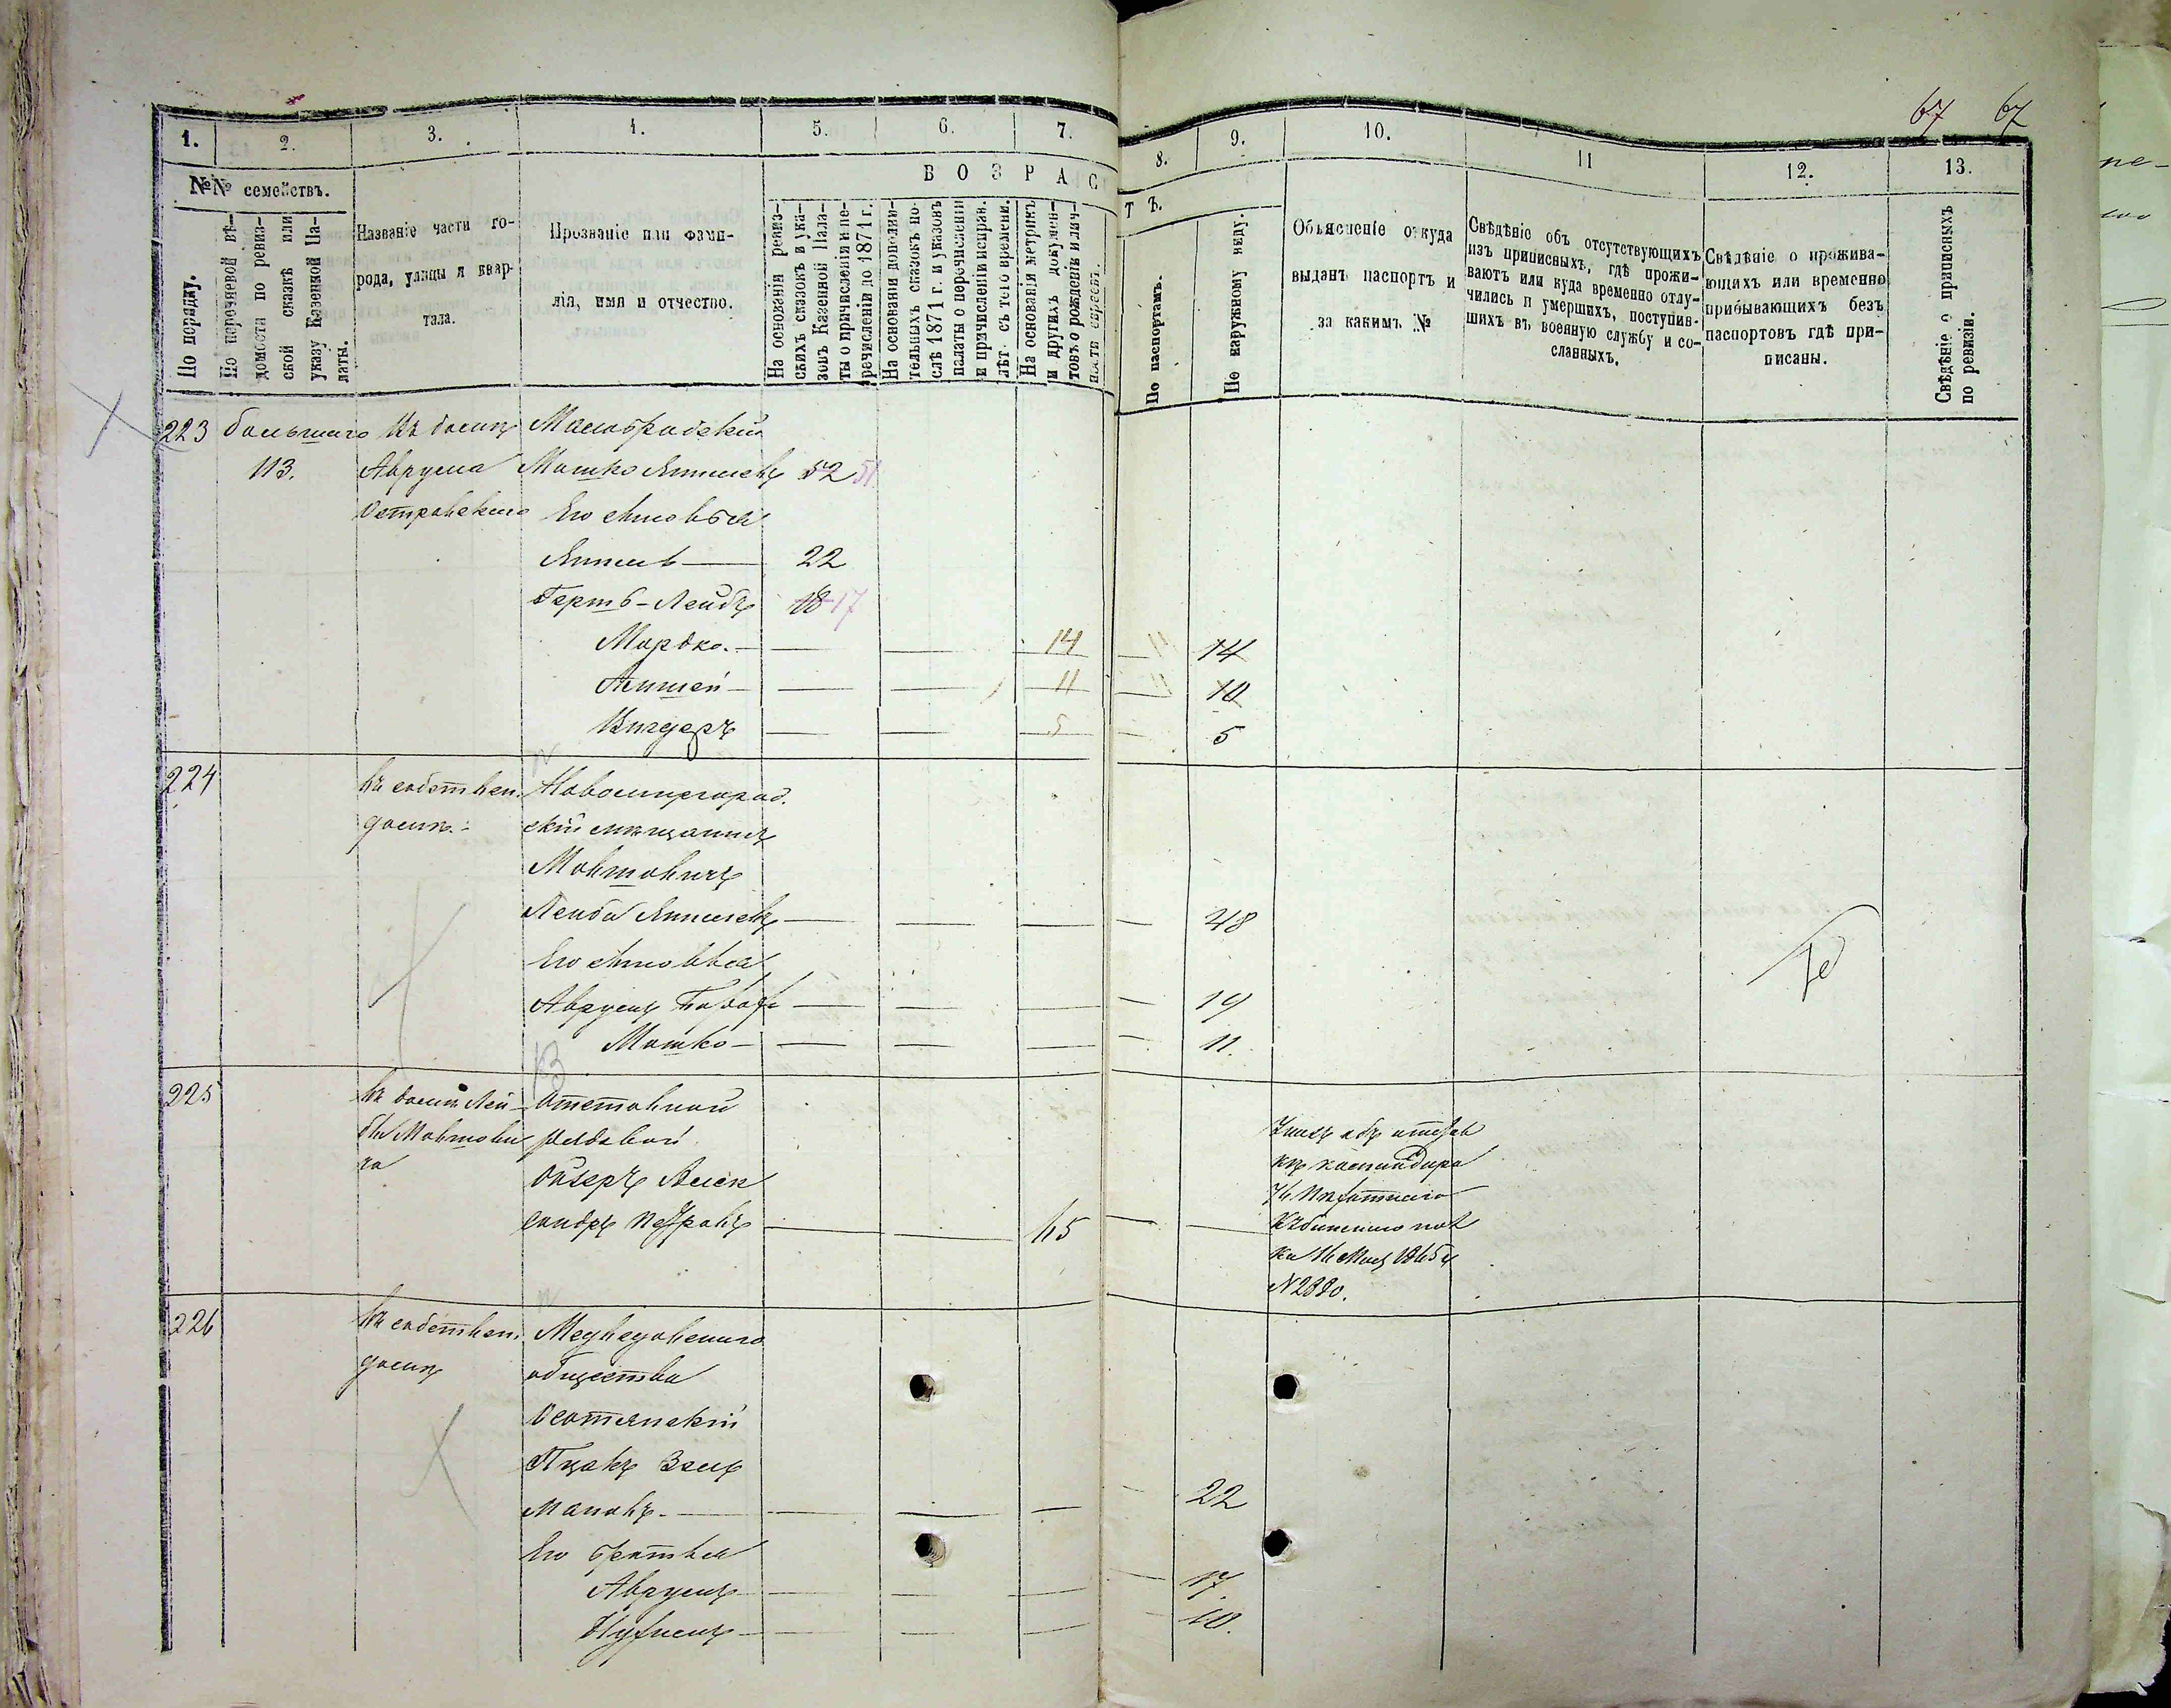 67 67
1. 2. 3. 4. 5. 6. 7. 8. 9. 10. 11 12. 13.
№№ семействъ.
По порядку.
По перечневой вѣ-
домости по ревиз-
ской сказкѣ или
указу Казенной Па-
латы.
Названіе части го-
рода, улицы и квар-
тала.
Прозваніе или фами-
лія, имя и отчество.
ВОЗРАСТЪ.
На основаніи ревиз-
скихъ сказокъ и ука-
зовъ Казенной Пала-
ты о причисленіи и пе-
речисленіи до 1871 г.
На основаніи дополни-
тельныхъ сказокъ по-
слѣ 1871 г. и указовъ
палаты о перечисленіи
и причисленіи исправ.
лѣт. съ того времени.
На основаніи метрикъ
и другихъ докумен-
товъ о рожденіи и лич-
ности евреевъ.
По паспортамъ.
По наружному виду.
Объясненіе откуда
выданъ паспортъ и
за какимъ №
Свѣдѣніе объ отсутствующихъ
изъ приписныхъ, гдѣ прожи-
ваютъ или куда временно отлу-
чились и умершихъ, поступив-
шихъ въ военную службу и со-
сланныхъ.
Свѣдѣніе о прожива-
ющихъ или временно
прибывающихъ безъ
паспортовъ гдѣ при-
писаны.
Свѣдѣніе о приписныхъ
по ревизіи.
223 Въ домѣ
113. Аврума Мошко 52 51
Островского Его сыновья
22
Лейбъ 18 17
Мордко. 14 14
11 10
Вигдеръ 5 5
224 въ собствен. Новомиргород.
домѣ. скій мѣщанинъ
Мовшовичъ
Лейба 48
Его сыновья
Аврумъ 19
Мошко 11.
225 въ домѣ Лей- отставной
бы Мовшови рядовой
ча Алек
сандръ Петровъ 65
Указъ объ отстав
кѣ командира
76 Пѣхотнаго
Кубинскаго пол
ка 16 1865 г
N 2880.
226 въ собствен. Медведовского
домѣ общества
Осотянскій
Ицокъ Зель
мановъ. 22
Его братья
Аврумъ 17.
Нухимъ 10.